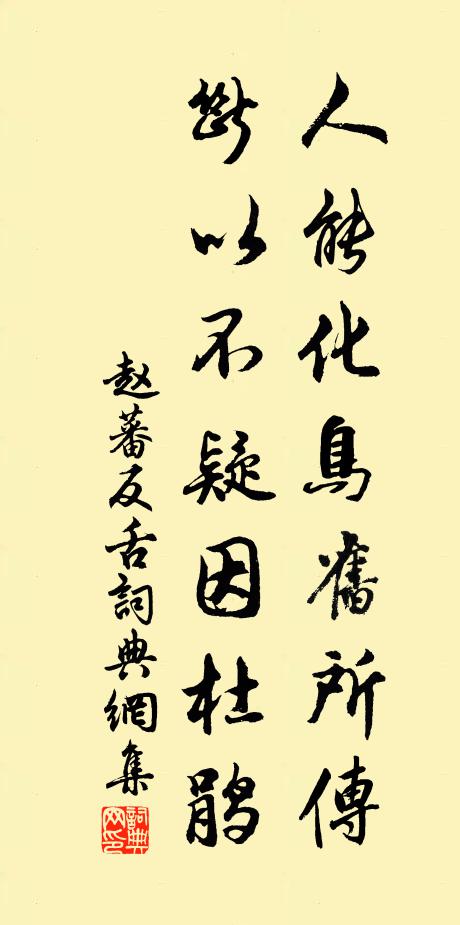 人能化鳥舊所傳
斷以不疑因杜鹃
赵蕃反舌詞典網集
詞典网印